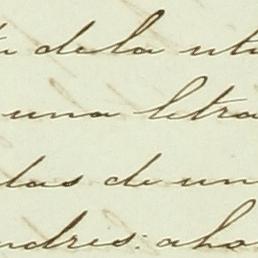 de la uti
una letra
las de un
ndres: aho